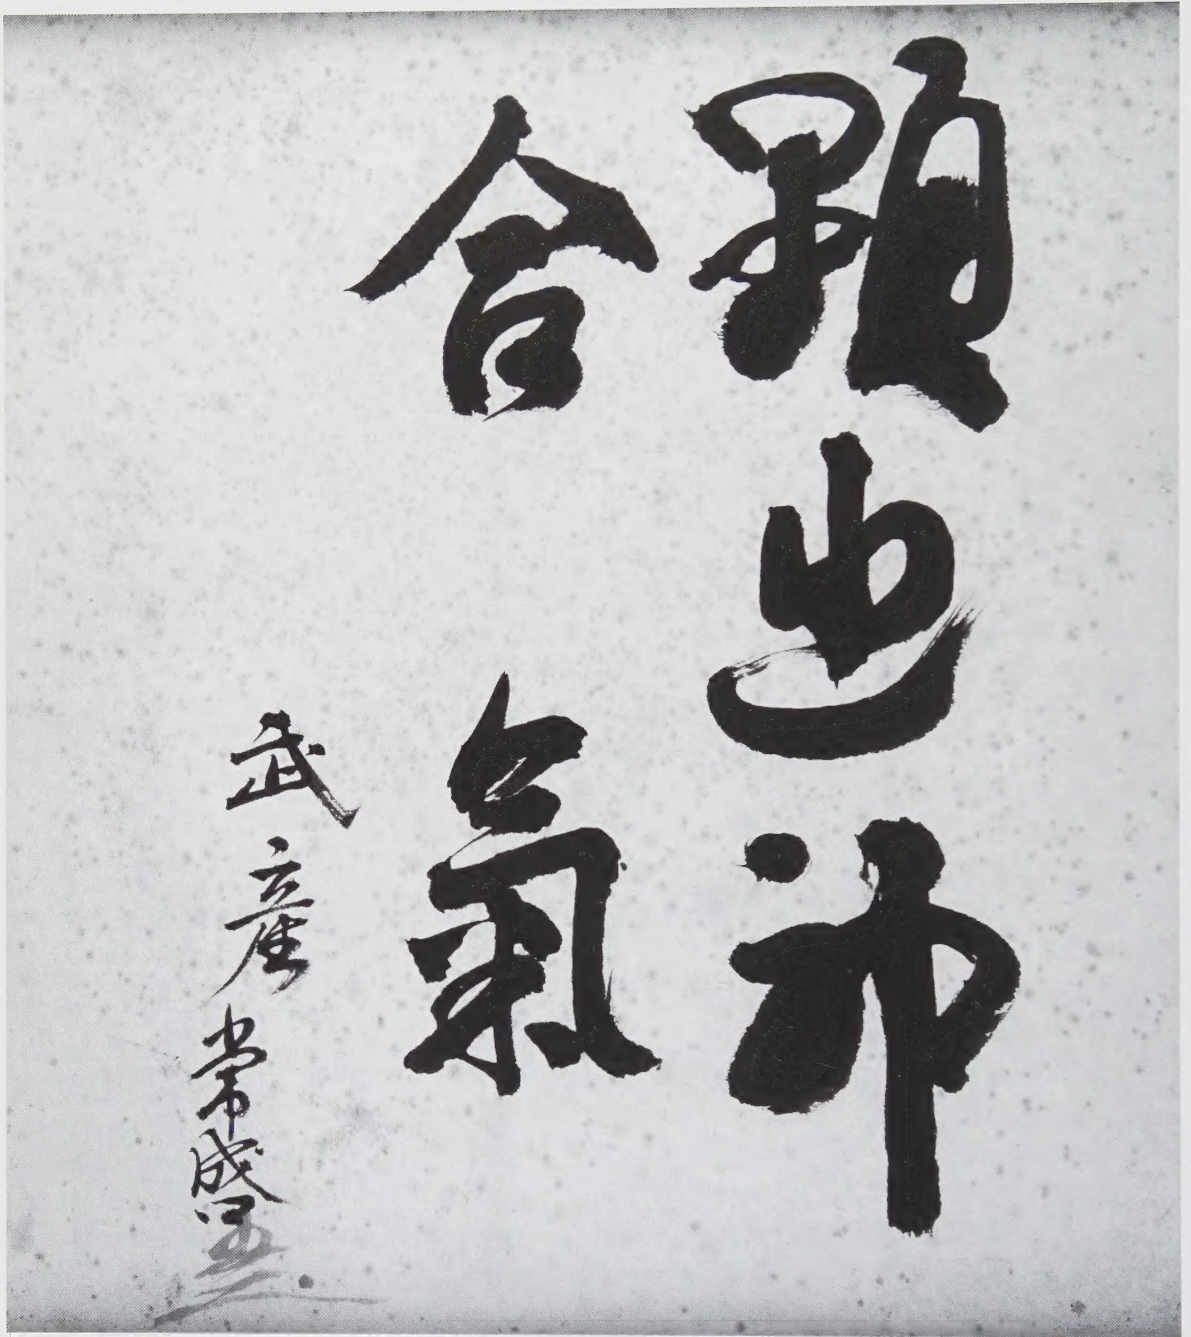 顕幽神
合氣
武産 常盛